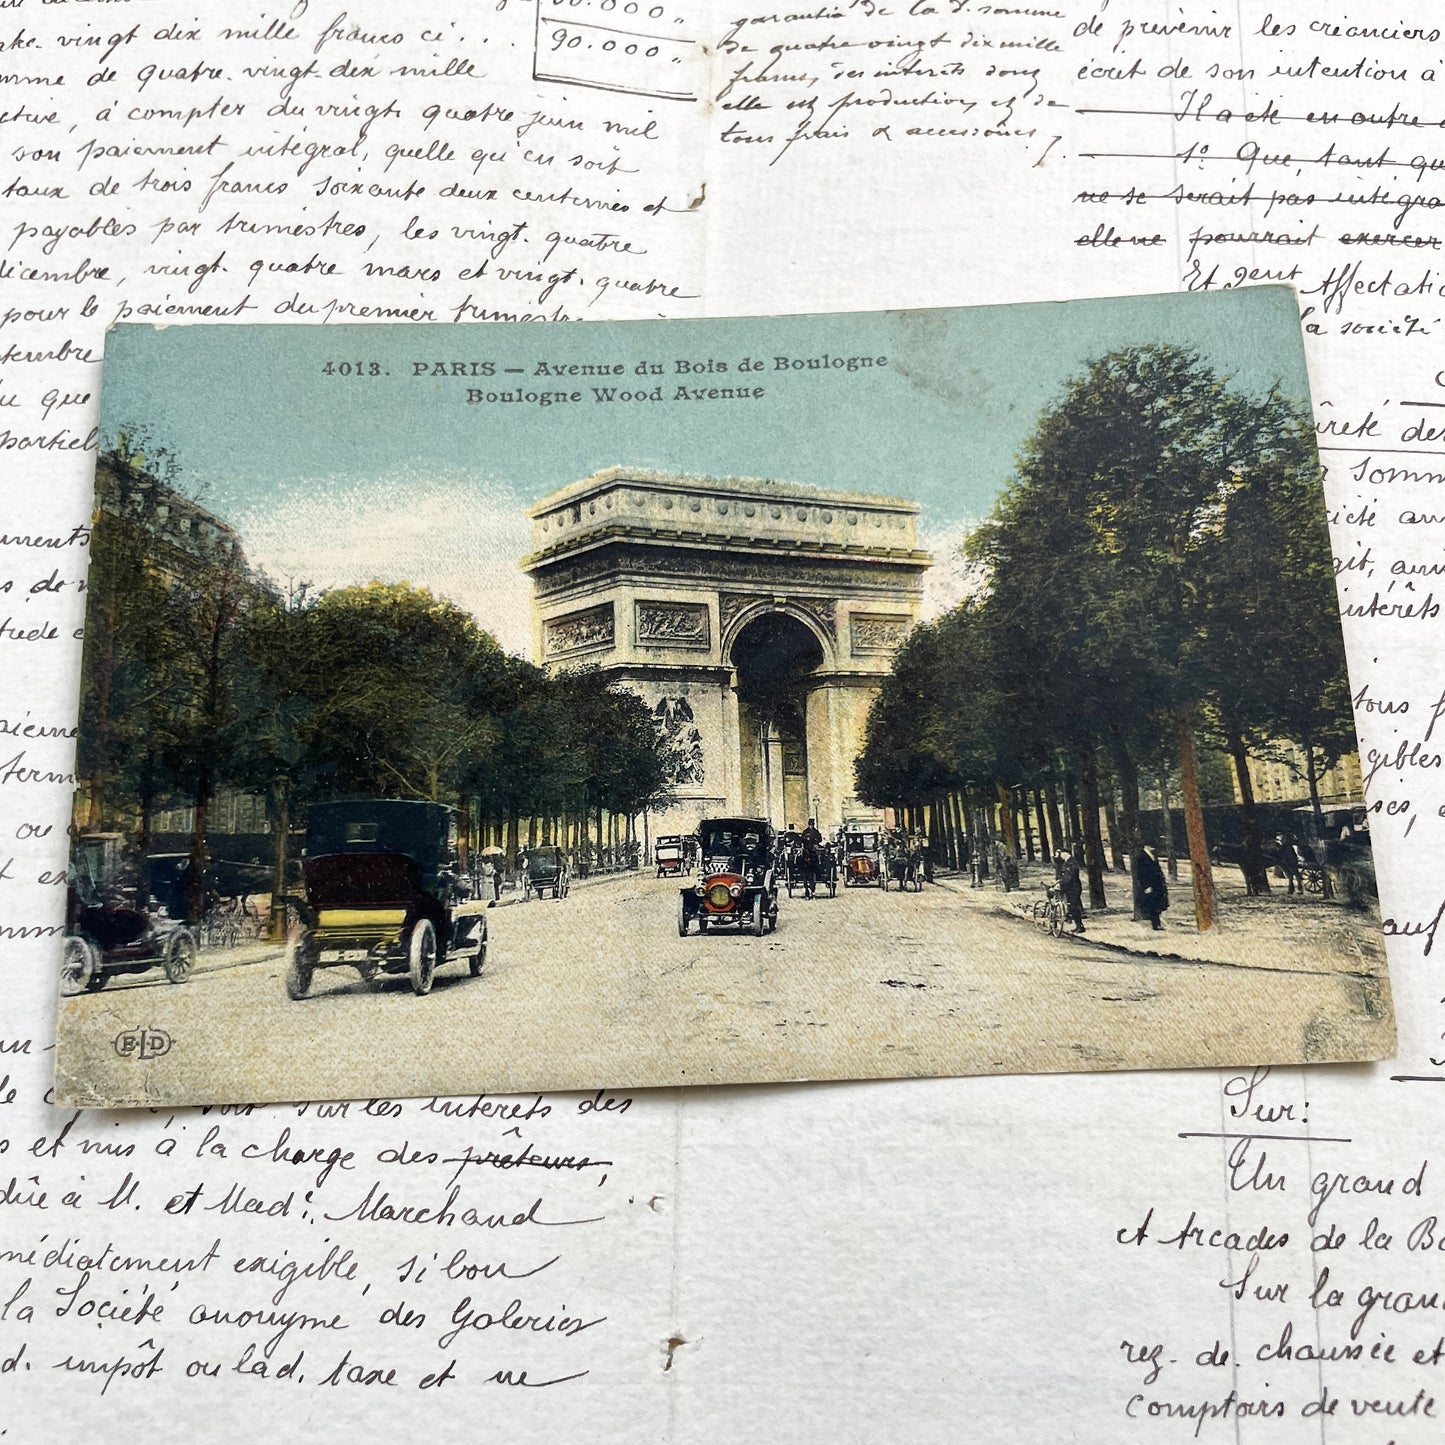 50.000 "
90.000 "
vingt dix mille francs ci . . .
de quatre-vingt-dix mille
à compter du vingt quatre juin mil
son paiement intégral, quelle qu'en soit
taux de trois francs soixante deux centimes et
payables par trimestres, les vingt-quatre
décembre, vingt-quatre mars et vingt-quatre
pour le paiement du premier trimestre
garantie de la d. somme
de quatre vingt dix mille
francs, des intérêts dont
elle est productive, et de
tous frais & accessoires
de prévenir les créanciers
écrit de son intention à
Il a été en outre
1º Que, tant qu
ne se serait pas intégra
elle ne pourrait exercer
Et gent Affectatio
la société
4013. PARIS — Avenue du Bois de Boulogne
Boulogne Wood Avenue
ELD
que
partiel
ûreté des
somm
intérêts
tous f
gibles
soit sur les intérêts des
et mis à la charge des prêteurs,
dûe à M. et Made. Marchand
médiatement exigible, si bon
la Société anonyme des Galeries
d. impôt ou lad. taxe et ne
Sur:
Un grand
et Arcades de la Bo
Sur la gran
rez-de-chaussée et
comptoirs de vente